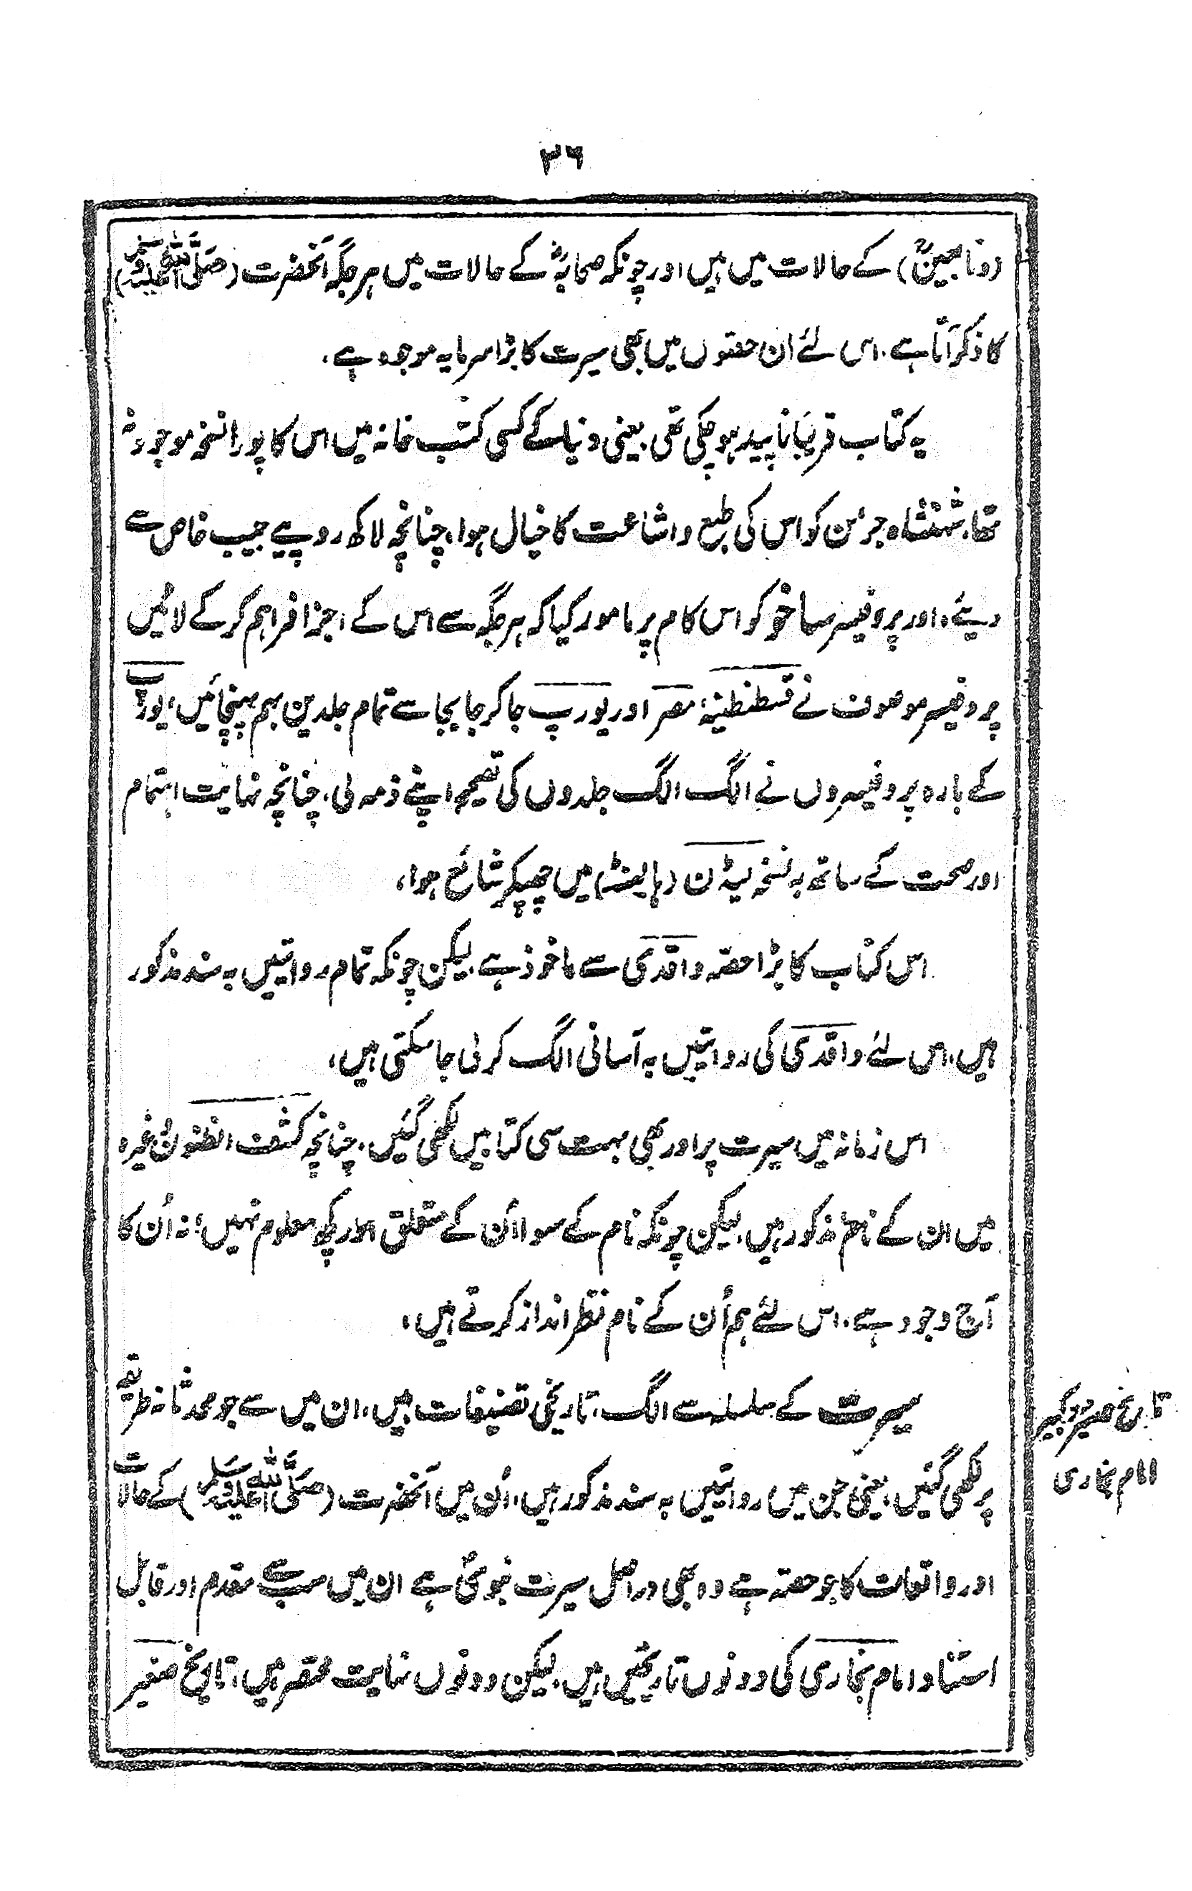 ۳۶
(وتابعینؒ) کے حالات میں ہیں اور چونکہ صحابہؓ کے حالات میں ہر جگہ آنحضرت (صَلَّی اللہُ عَلَیْہِ وَسَلَّم)
کا ذکر آتا ہے، اس لئے ان حصّوں میں بھی سیرت کا بڑا سرمایہ موجود ہے،
یہ کتاب قریباً ناپید ہو چکی تھی، یعنی دنیا کے کسی کتب خانہ میں اس کا پورا نسخہ موجود نہ
تھا، شہنشاہ جرمن کو اس کی طبع و اشاعت کا خیال ہوا، چنانچہ لاکھ روپیے جیب خاص سے
دیئے، اور پروفیسر ساخو کو اس کام پر مامور کیا کہ ہر جگہ سے اس کے اجزا فراہم کر کے لائیں
پروفیسر موصوف نے قسطنطنیہ، مصر اور یورپ جا کر جابجا سے تمام جلدین بہم پہنچائیں، یورپ
کے بارہ پروفیسروں نے الگ الگ جلدوں کی تصحیح اپنے ذمہ لی، چنانچہ نہایت اہتمام
اور صحت کے ساتھ یہ نسخہ لیڈن (ہالینڈ) میں چھپکر شائع ہوا،
اس کتاب کا بڑا حصّہ واقدی سے ماخوذ ہے، لیکن چونکہ تمام روایتیں بہ سند مذکور
ہیں، اس لئے واقدی کی روایتیں بہ آسانی الگ کر لی جا سکتی ہیں،
اس زمانہ میں سیرت پر اور بھی بہت سی کتابیں لکھی گئیں، چنانچہ کشف الظنون وغیرہ
میں ان کے نام مذکور ہیں، لیکن چونکہ نام کے سوا اُن کے متعلق اور کچھ معلوم نہیں، نہ اُن کا
آج وجود ہے، اس لئے ہم اُن کے نام نظر انداز کرتے ہیں،
تاریخ صغیر و کبیر
امام بخاری
سیرت کے سلسلہ سے الگ، تاریخی تصنیفات ہیں، ان میں سے جو محدثانہ طریقے
پر لکھی گئیں، یعنی جن میں روایتیں بہ سند مذکور ہیں، اُن میں آنحضرت (صَلَّی اللہُ عَلَیْہِ وَسَلَّم) کے حالات
اور واقعات کا جو حصّہ ہے وہ بھی دراصل سیرت نبویؐ ہے ان میں سب سے مقدم اور قابل
استناد امام بخاری کی دونوں تاریخیں ہیں، لیکن دونوں نہایت مختصر ہیں، تاریخ صغیر